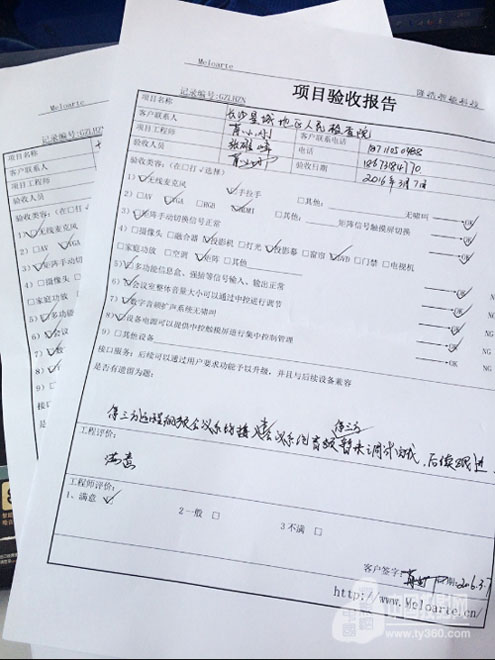 Meloarte
Meloarte
记录编号:GZLHZN
项目验收报告
记录编号:GZLHZN
项目名称
客户联系人 客户联系电话
项目工程师 电话
验收人员 验收日期
2016年3月7日
验收类容:(在□打√选择)
1)☑无线麦克风 ☑手拉手 □其他: 无啸叫 OK
2)□AV ☑VGA □RGB ☑HDMI □其他: 矩阵信号触摸屏切换 OK
3)☑矩阵手动切换信号正常 OK
4)□摄像头 □融合器 ☑投影机 □灯光 ☑投影幕 □窗帘 ☑DVD □门禁 □电视机
□家庭功放 □空调 ☑矩阵 □其他 OK
5)☑多功能信息盒、强插等信号输入、输出正常 OK NG
6)☑会议室整体音量大小可以通过中控进行调节 OK NG
7)☑数字音频扩声系统无啸叫 OK NG
8)☑设备电源可以提供中控触摸屏进行集中控制管理 OK NG
9)□其他设备 OK NG
接口服务:后续可以通过用户要求功能予以升级,并且与后续设备兼容
是否有遗留为题:
后续跟进
工程评价:
满意
工程师评价:
1、满意 ☑ 2一般 □ 3不满 □
客户签字: 日期:2016.3.7
http://www.Meloarte.cn/
项目名称
客户联系人
项目工程师
验收人员
验收类容:(在□打
1)☑无线麦克风
2)□AV ☑VGA
3)☑矩阵手动
4)□摄像头
□家庭功放
5)☑多功
6)☑会议
7)
8)
9)□
接口服
是否有
www.ty360.com